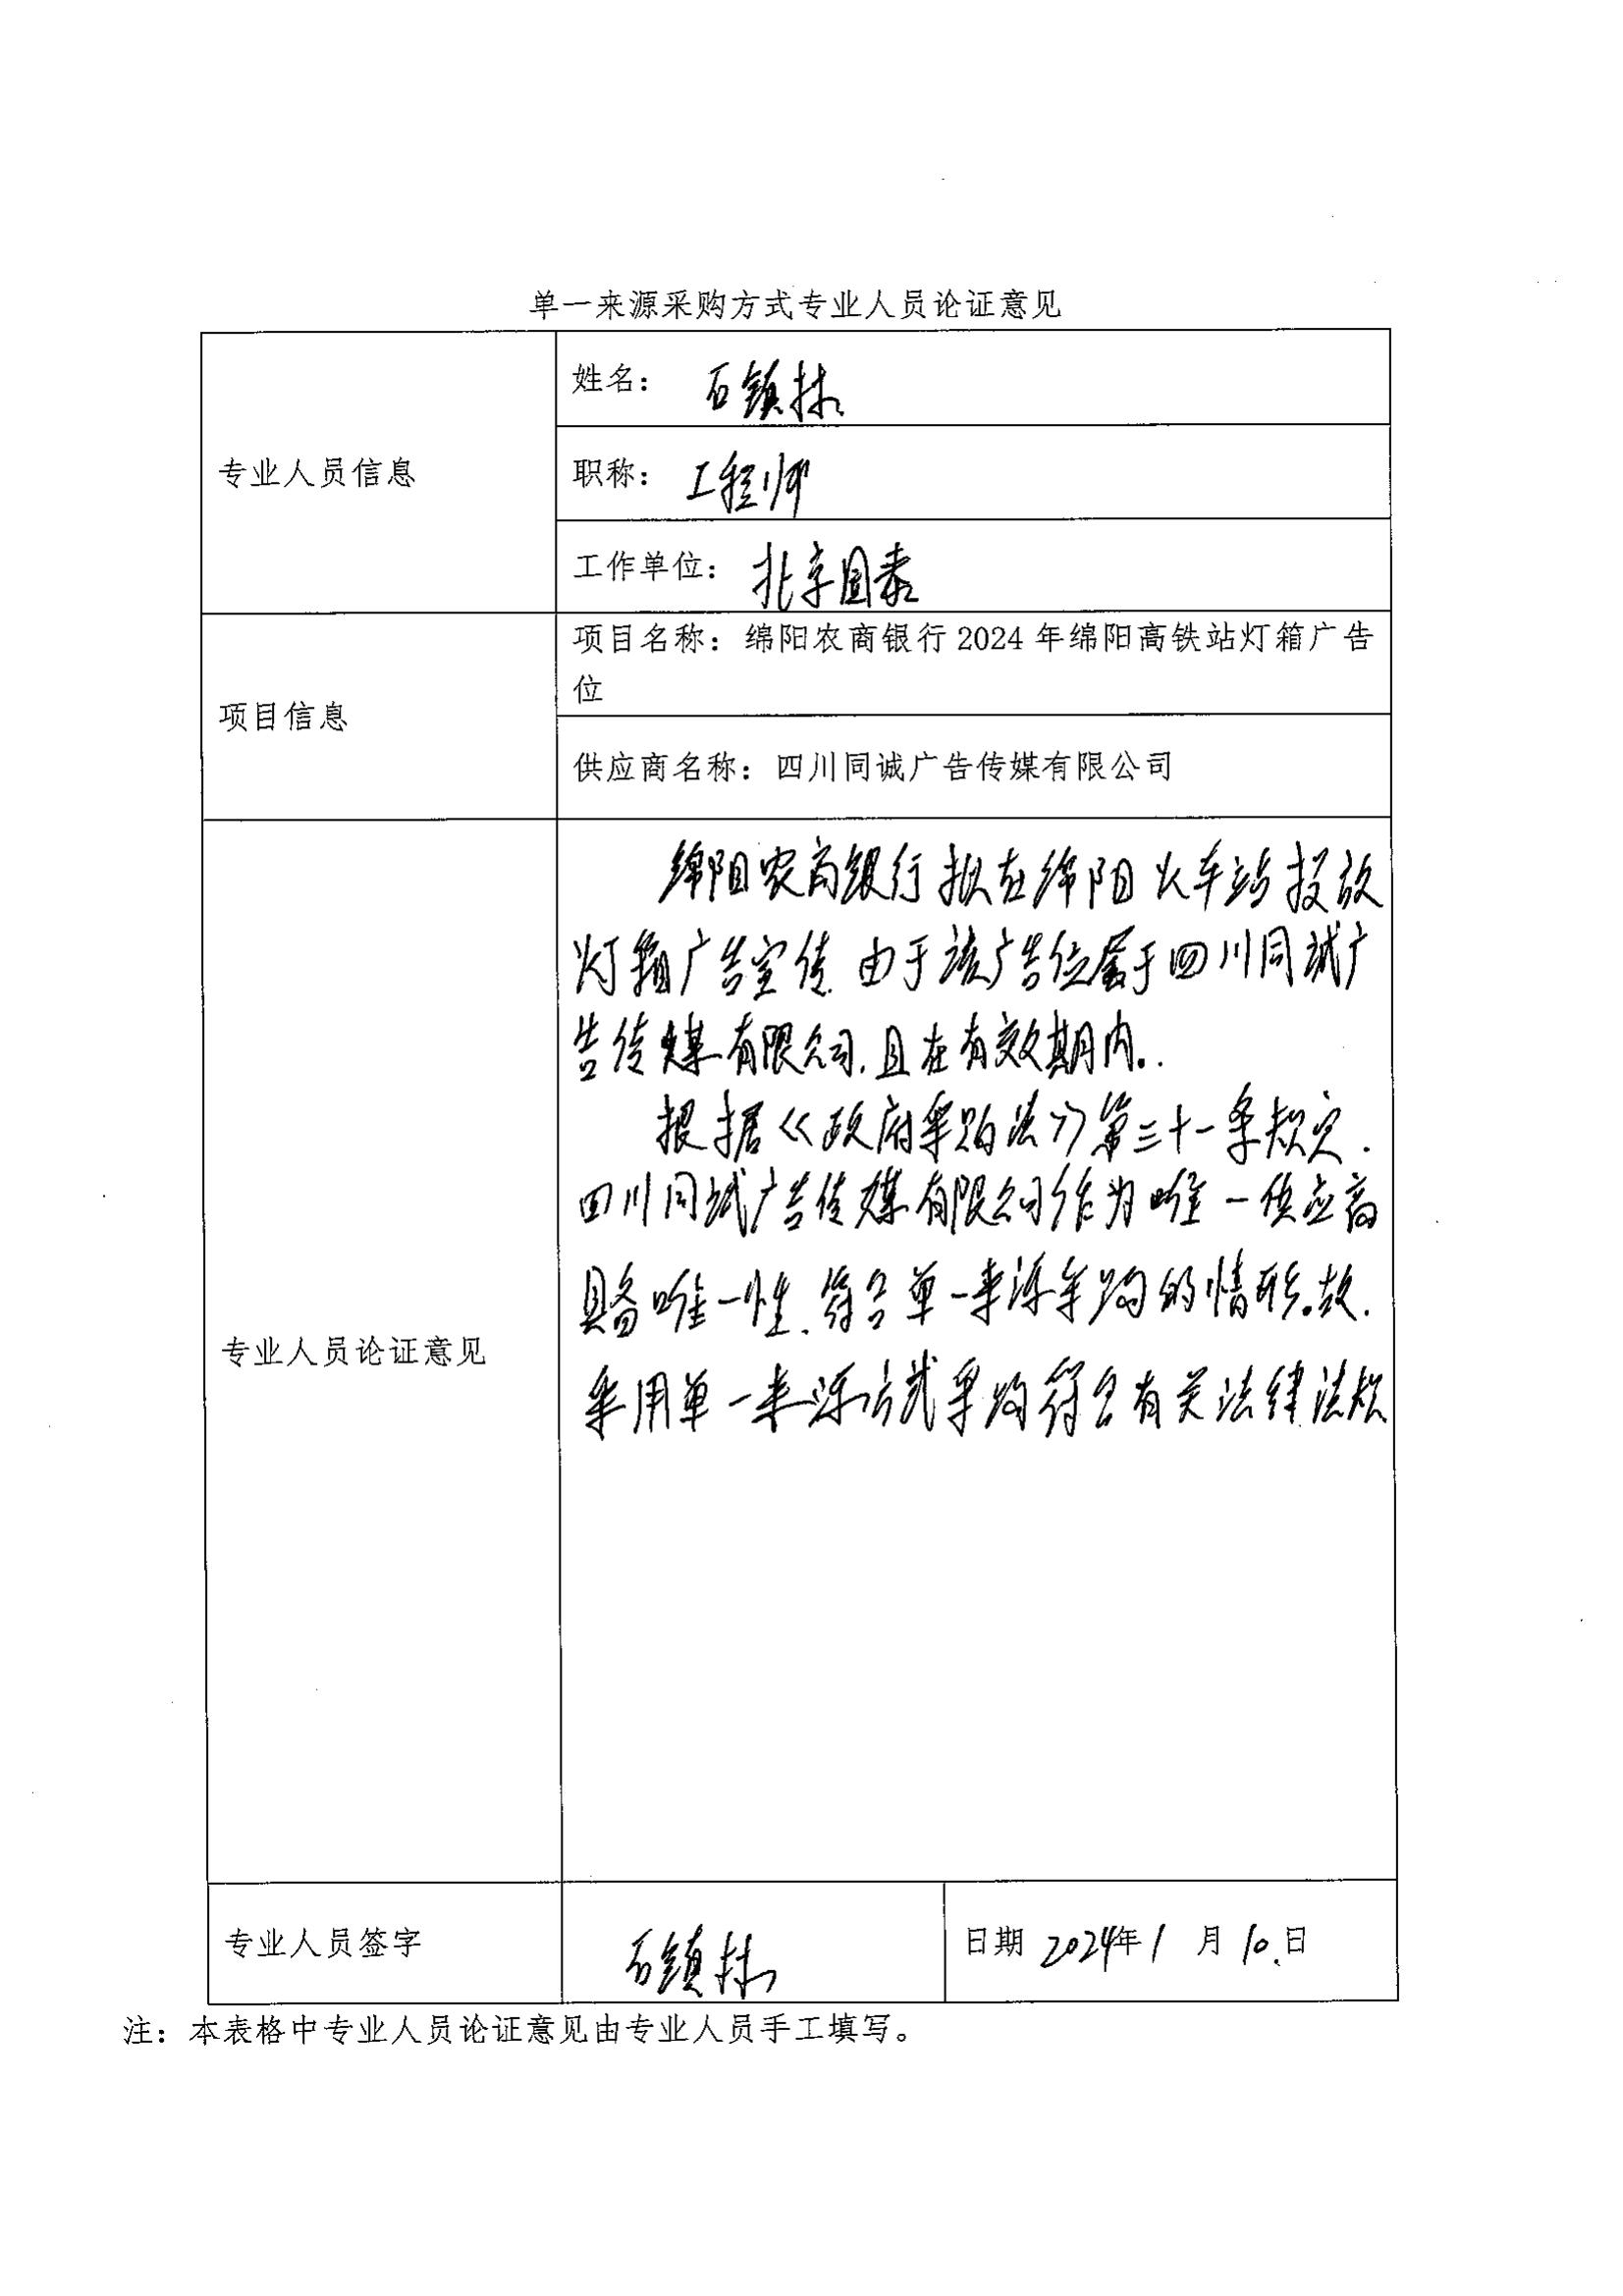 单一来源采购方式专业人员论证意见
专业人员信息
姓名： 石镇林
职称： 工程师
工作单位： 北京国泰
项目信息
项目名称：绵阳农商银行2024年绵阳高铁站灯箱广告
位
供应商名称：四川同诚广告传媒有限公司
专业人员论证意见
绵阳农商银行拟在绵阳火车站投放
灯箱广告宣传.由于该广告位属于四川同诚广
告传媒有限公司,且在有效期内。
根据《政府采购法》第三十一条规定.
四川同诚广告传媒有限公司作为唯一供应商
具备唯一性.符合单一来源采购的情形。故.
采用单一来源方式采购符合有关法律法规
专业人员签字
石镇林
日期 2024年1月10日
注：本表格中专业人员论证意见由专业人员手工填写。